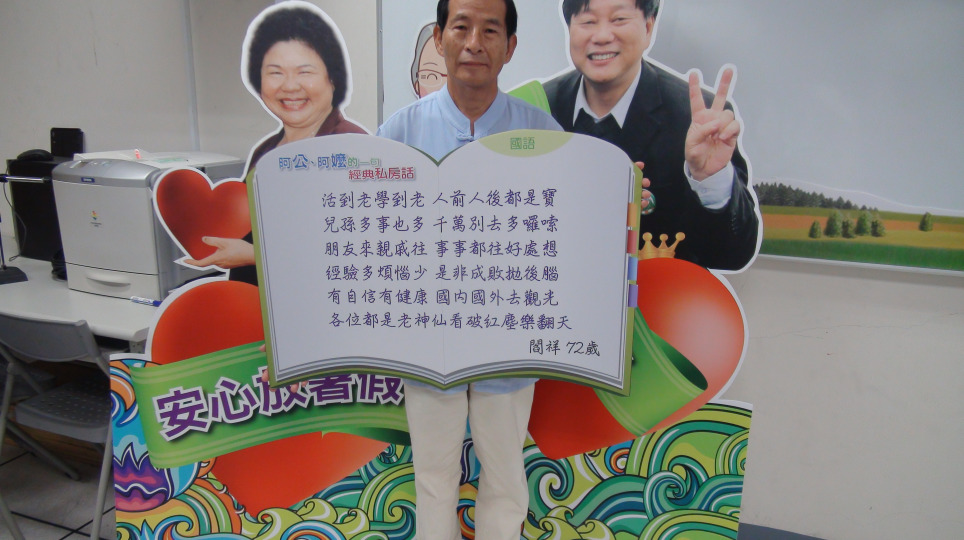 阿公、阿嬤的一句
經典私房話
國語
活到老學到老 人前人後都是寶
兒孫多事也多 千萬別去多囉嗦
朋友來親戚往 事事都往好處想
經驗多煩惱少 是非成敗拋後腦
有自信有健康 國內國外去觀光
各位都是老神仙看破红塵樂翻天
閻祥 72歲
安心放暑假